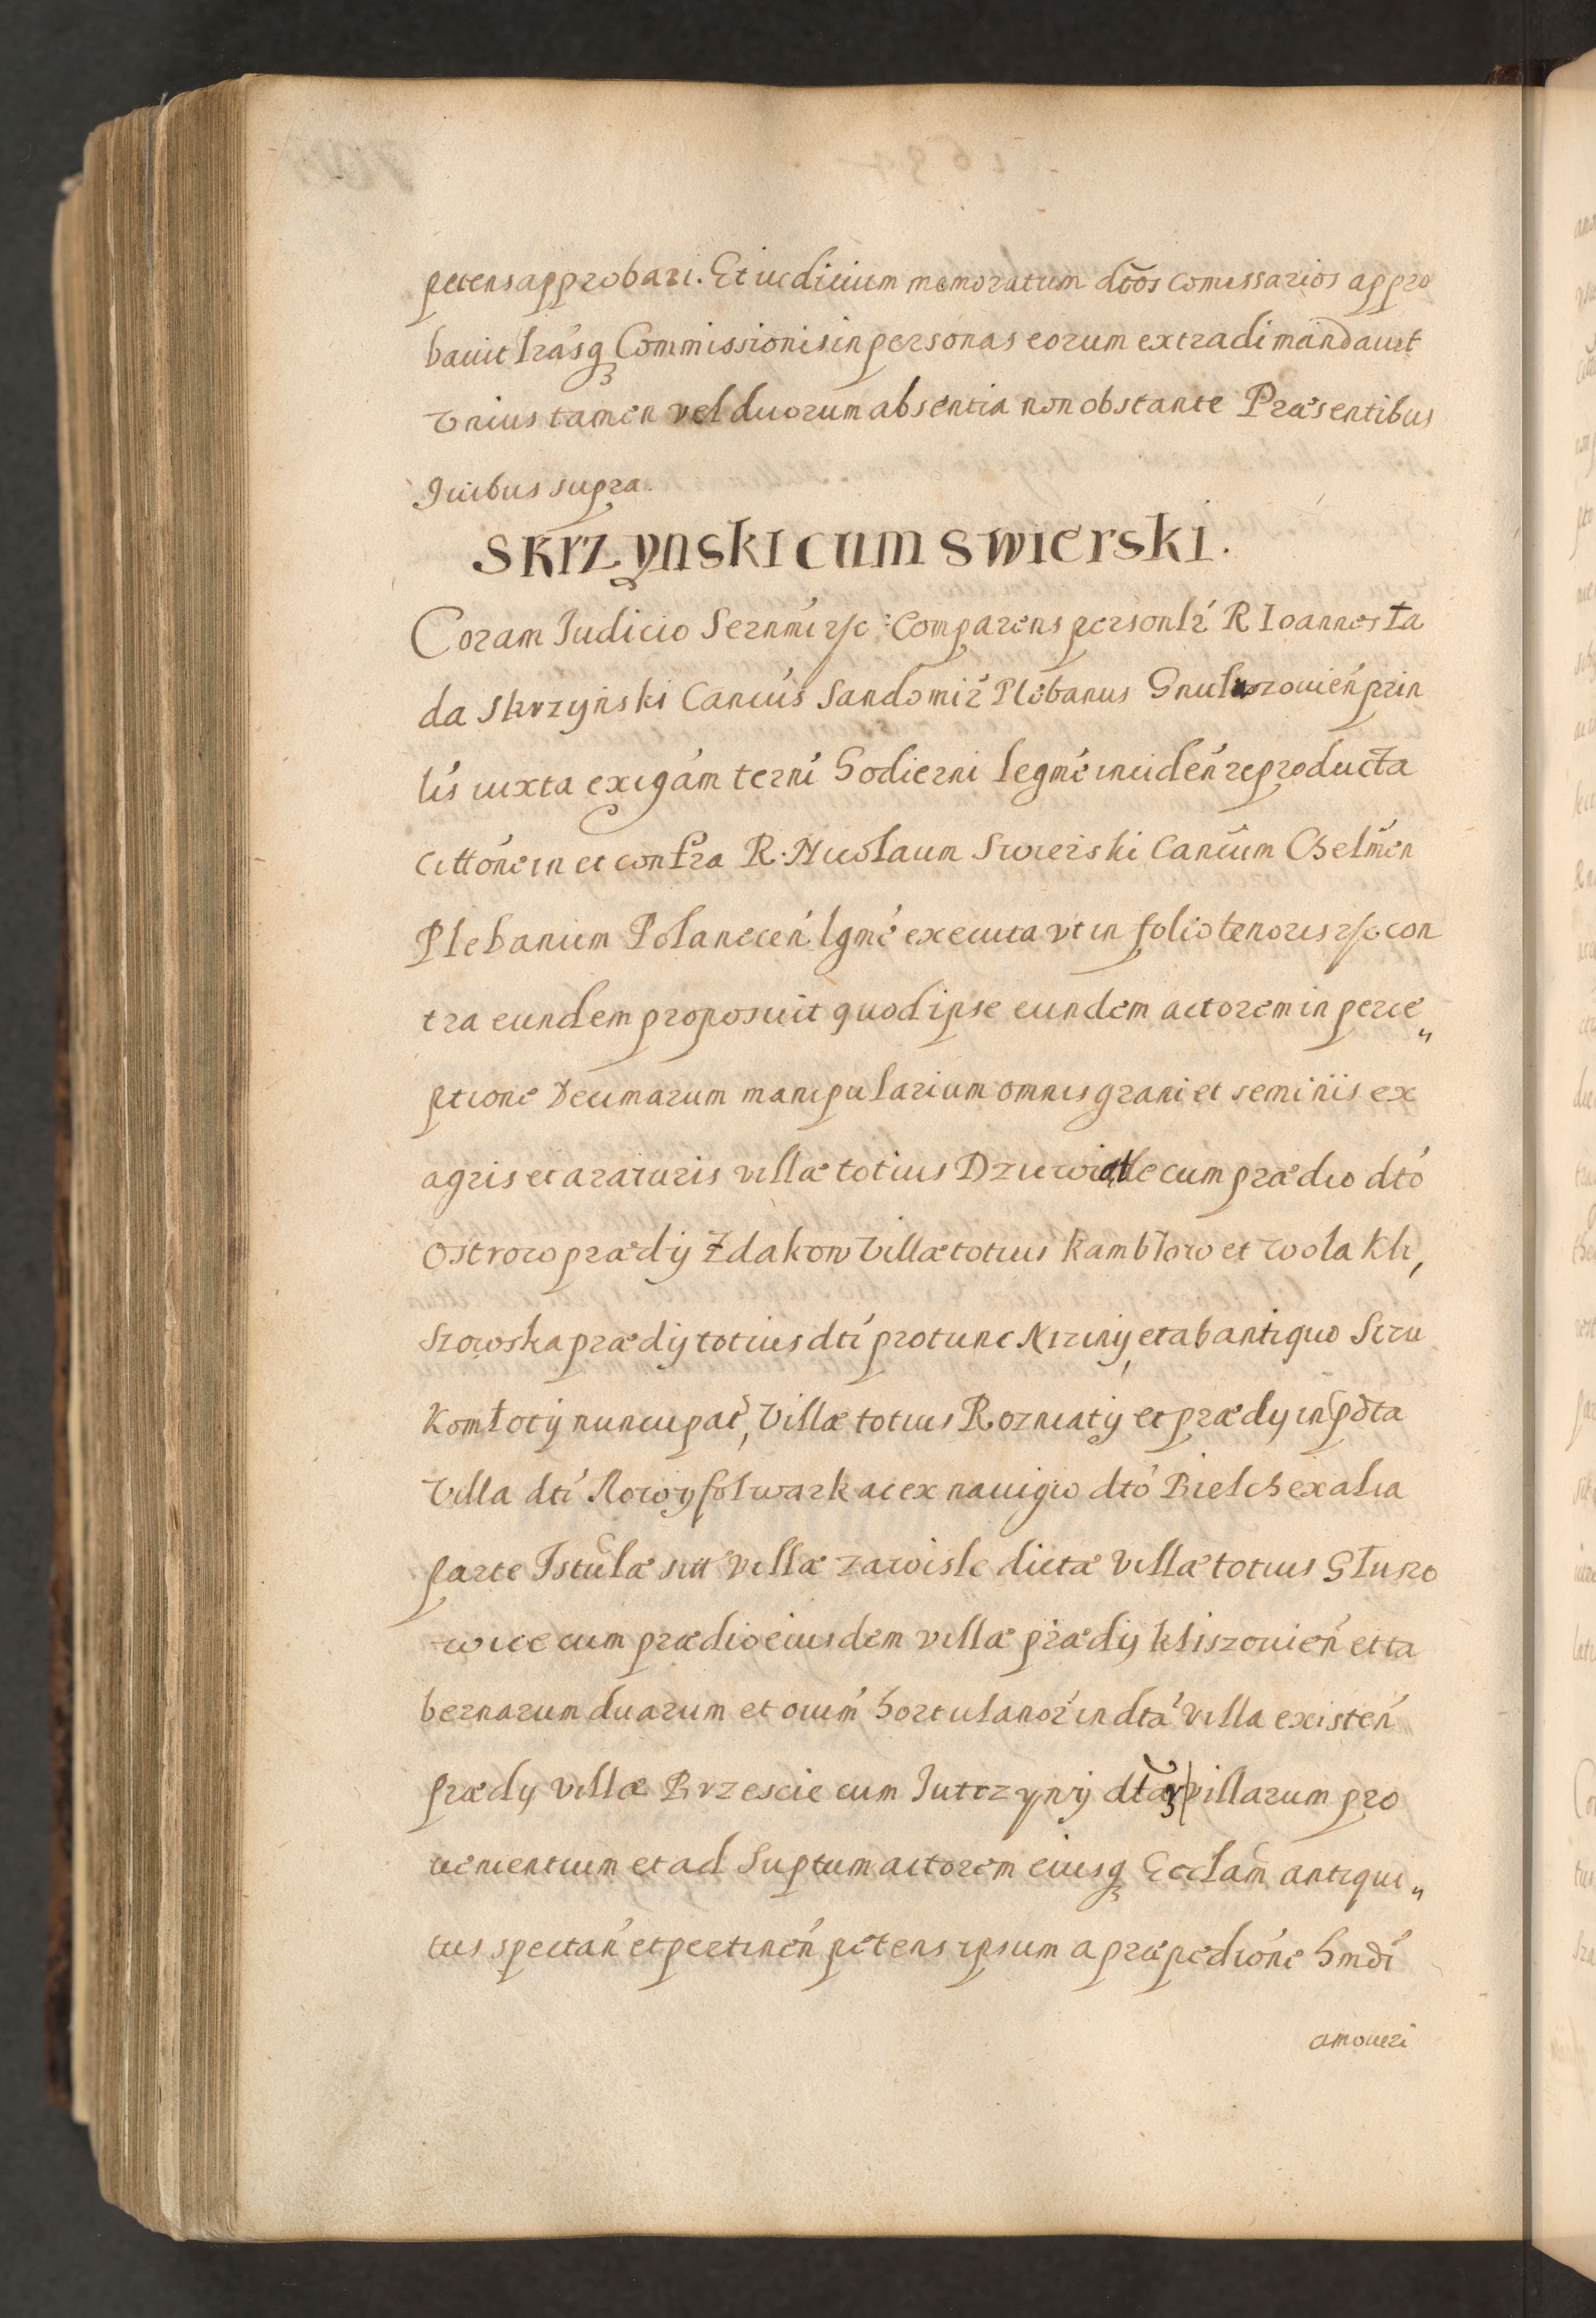 petens approbari. Et iudicium memoratum dtos comissarios appro
bauit lrasq3 Commissionis in personas eorum extradi mandauit
Vnius tamen vel duorum absentia non obstante Præsentibus
quibus supra.
SKrzynski cum Swierski.
Coram Iudicio Sernmi etc: Comparens personlr R Ioannes Ła
da Skrzyński Cancus Sandomir Plebanus Gnutorouień prin
lis iuxta exigam terni hodierni legme inciden reproducta
cittone in et contra R. Nicolaum Swierski Cancum Chelmen
Plebanum Polanecen lgme executa vt in folio tenoris etc con
tra eundem proposuit quod ipse eundem actorem in perce„
ptione Decimarum manipularium omnis grani et seminis ex
agris et araturis villæ totius Dzrowialle cum prædio dto
Ostrow prædij Zdakow Villæ totius Kambłow et Wola Kli,
szowska prædij totius dti pro tunc Nizinij, et ab antiquo Scru
Komłoty nuncupat, Villæ totius Rozniaty et prædij in pdta
Villa dti Nowy folwark ac ex nauigio dto Bielch ex alia
parte Istulæ sitt villæ Zawisle dictæ Villæ totius Głuszo
wice cum prædio eiusdem villæ prædij Kliszouień et ta
bernarum duarum et ouim hortulanor in dta villa existen
prædij villæ Brzescie cum Jutrzynij dtar villarum pro
uenientium et ad Suptum actorem eiusq3 Ecclam antiqui„
tus spectan et pertinen petens ipsum a præpedione hmdi
amoueri